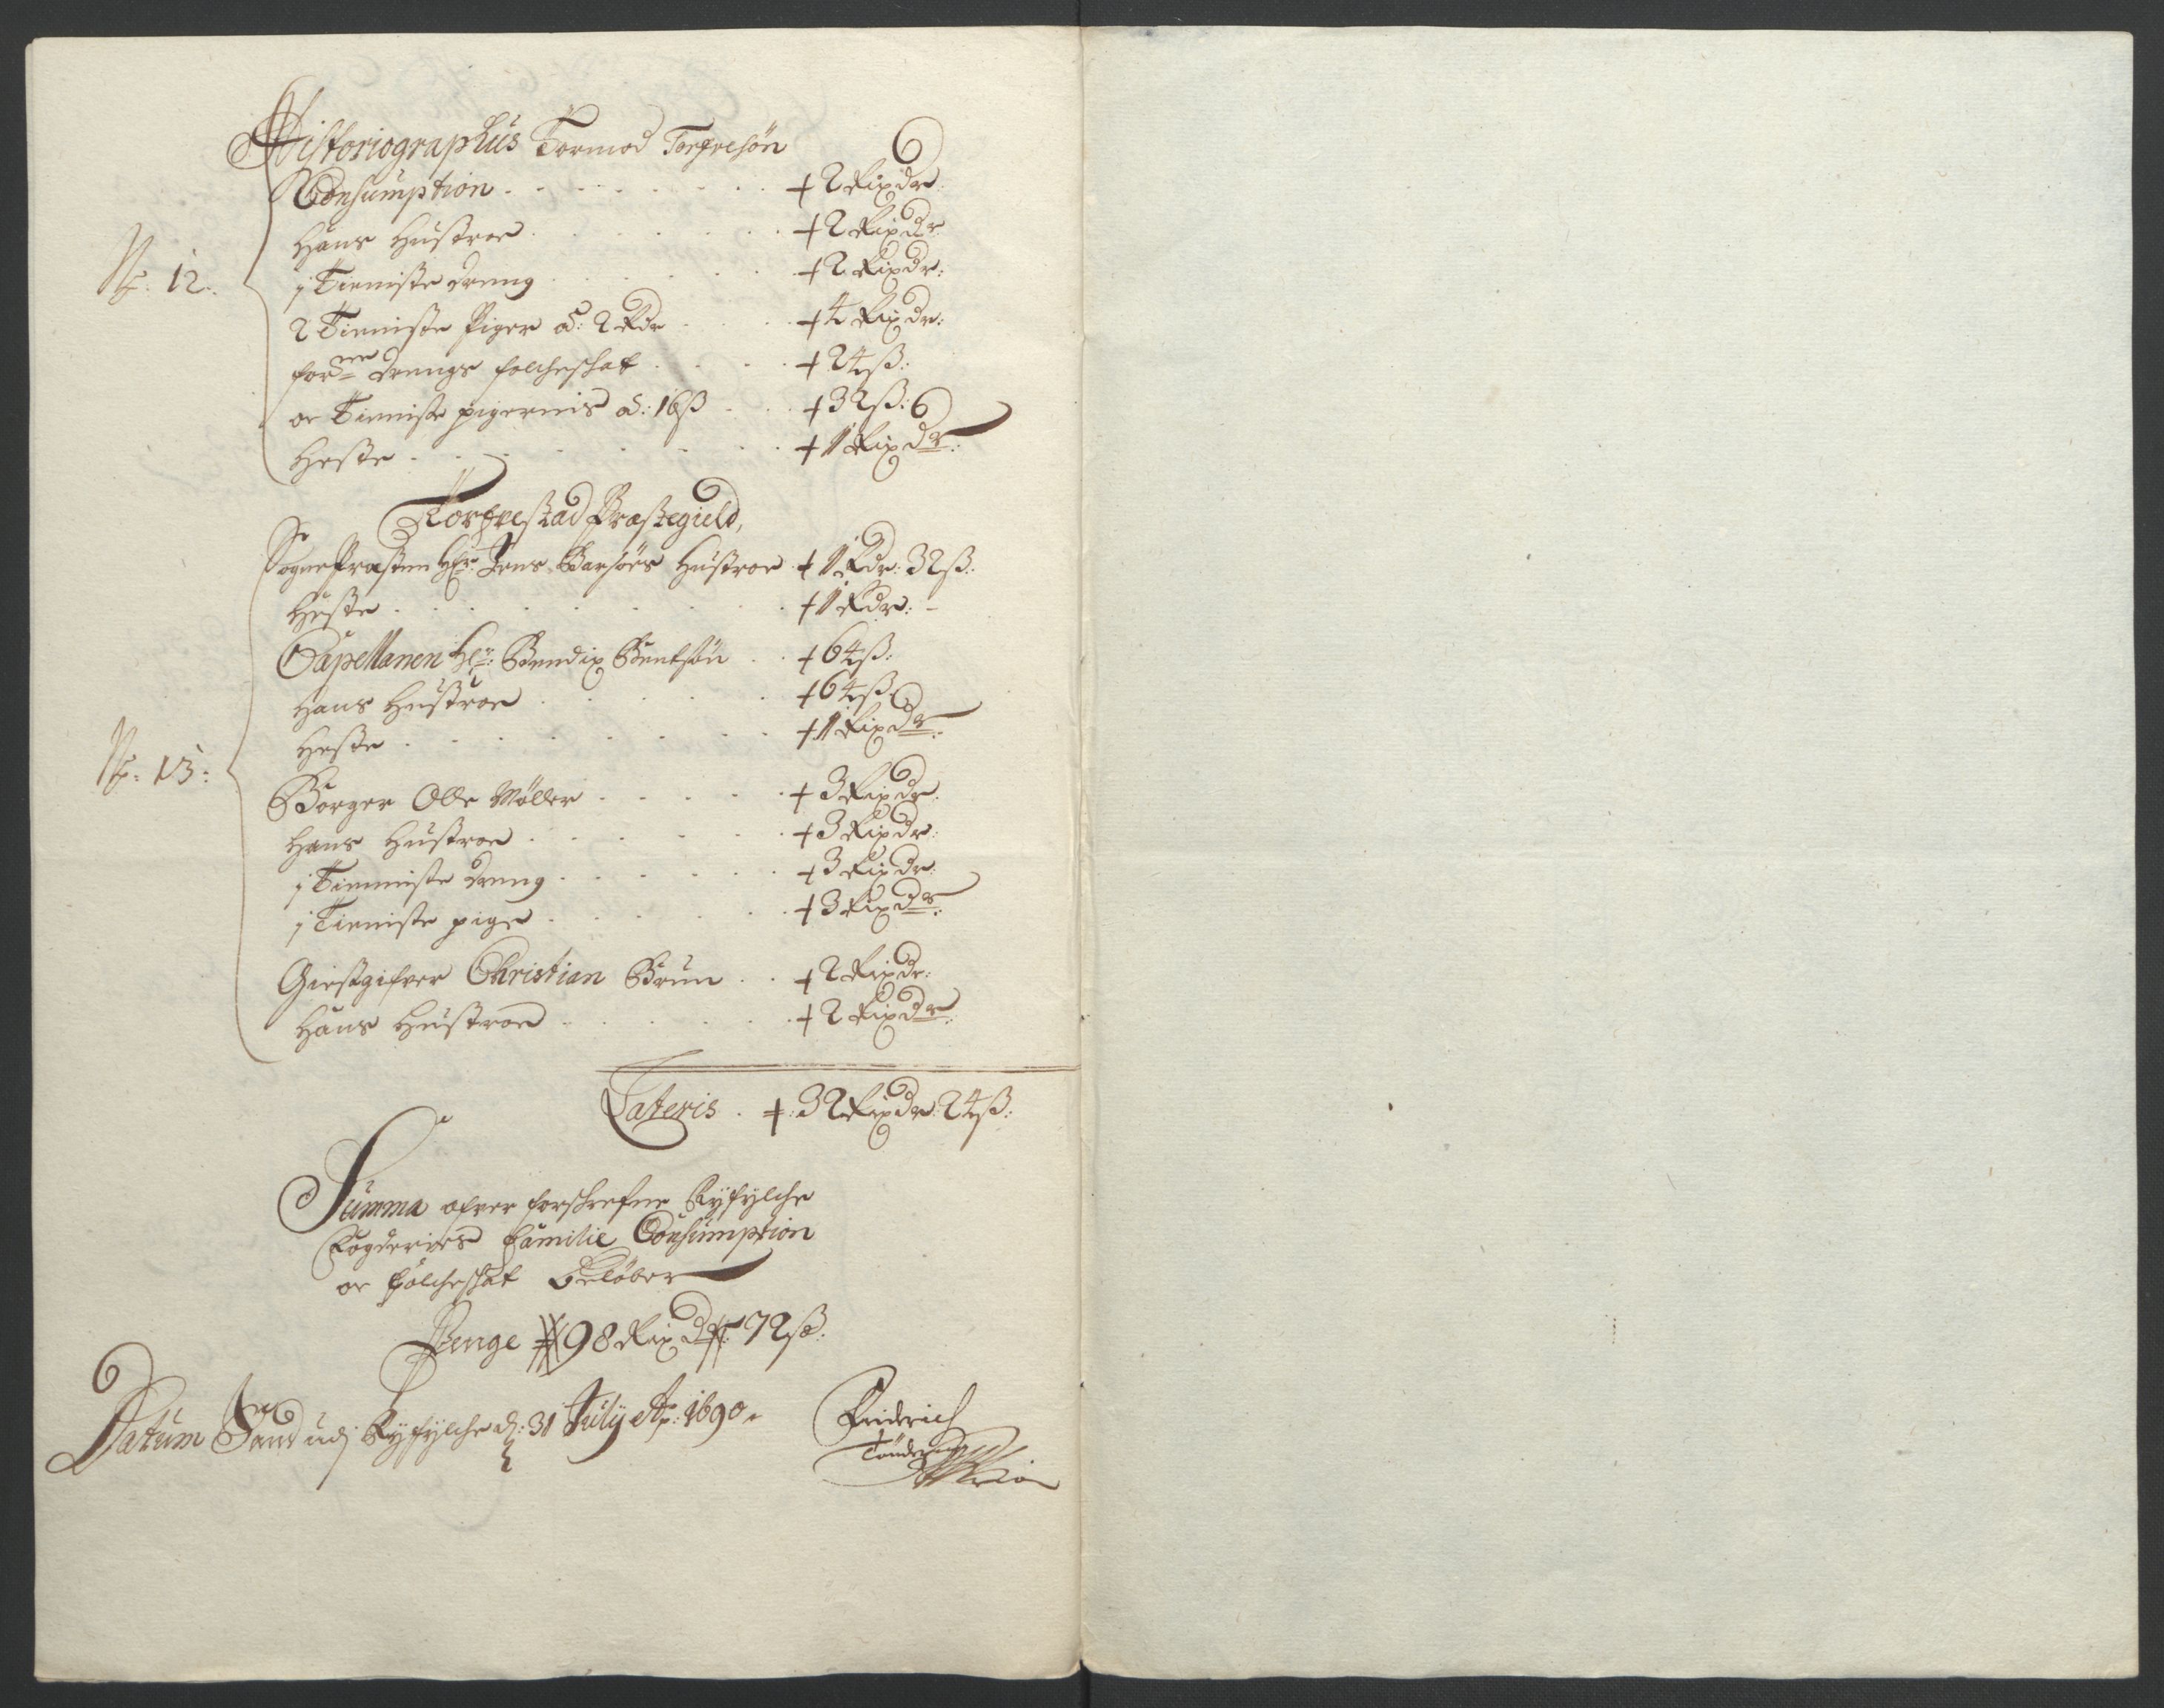 Historiographus Tormod Torfvesøn
Consumption . . . . . . . + 2 Rixdr:
Hans Hustroe . . . . . . . + 2 Rixdr:
No: 12. 1 Tienniste dreng . . . . . . + 2 Rixdr:
2 Tienniste Piger à: 2 Rdr . . . + 4 Rixdr:
forne drengs folcheschat . . . . + 24 ß:
oc Tienniste pigernis à: 16 ß . . + 32 ß:
Heste . . . . . . . . + 1 Rixdr:
Torfvestad Præstegield,
Sognepræsten Hr: Jens Barsøes Hustroe . + 1 Rdr: 32 ß:
Heste . . . . . . . . + 1 Rdr: -
Capellanen Hr: Bendix Bentsøn . . + 64 ß:
Hans Hustroe . . . . . + 64 ß
Heste . . . . . . . . + 1 Rixdr:
No: 13: Borger Olle Møller . . . . . + 3 Rixdr.
Hans Hustroe . . . . . . + 3 Rixdr:
1 Tienniste dreng . . . . . . + 3 Rixdr:
1 Tienniste pige . . . . . . + 3 Rixdr:
Giestgifver Christian Brun . . + 2 Rixdr:
Hans Hustroe . . . . . . + 2 Rixdr:
Lateris . +: 32 Rixdr: 24 ß:
Summa ofver forschrefne Ryfylche
Fogderies Familie Consumption
oc folcheschat Beløber
Penge 98 Rixdr: 72 ß:
Datum Sand udj Ryfylche d: 31 July Ao: 1690.
Friderich